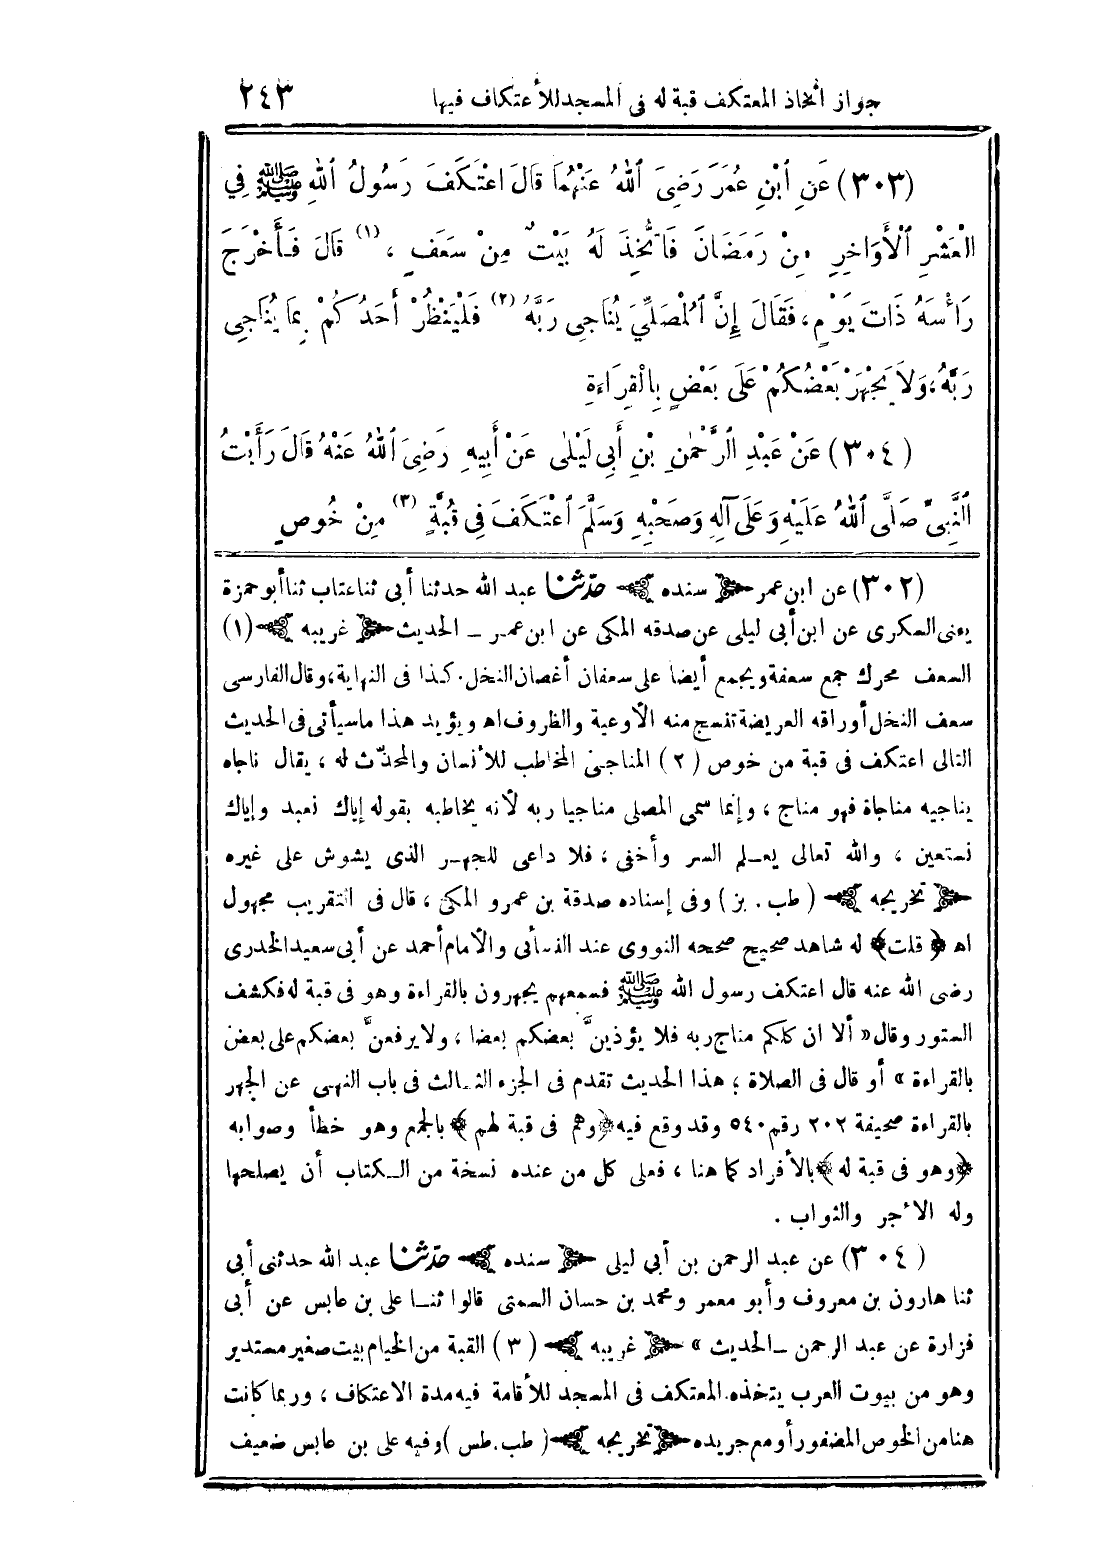 جواز اتخاذ المعتكف قبة له فى المسجد للأعتكاف فيها ٢٤٣
(٣٠٣) عَنِ ٱبْنِ عُمَرَ رَضِىَ ٱللهُ عَنْهُمَا قَالَ اعْتَكَفَ رَسُولُ اللهِ ﷺ فِي
الْعَشْرِ ٱلْأَوَاخِرِ مِنْ رَمَضَانَ فَاتُّخِذَ لَهُ بَيْتٌ مِنْ سَعَفٍ ، (١) قَالَ فَأَخْرَجَ
رَأْسَهُ ذَاتَ يَوْمٍ، فَقَالَ إِنَّ ٱلْمُصَلِّيَ يُنَاجِى رَبَّهُ (٢) فَلْيَنْظُرْ أَحَدُكُمْ بِمَا يُنَاجِى
رَبَّهُ، وَلاَ يَجْهَرْ بَعْضُكُمْ عَلَى بَعْضٍ بِالْقِرَاءَةِ
(٣٠٤) عَنْ عَبْدِ ٱلرَّحْمٰنِ بْنِ أَبِى لَيْلٰى عَنْ أَبِيهِ رَضِىَ ٱللهُ عَنْهُ قَالَ رَأَيْتُ
ٱلنَّبِىَّ صَلَّى ٱللهُ عَلَيْهِ وَعَلَى آلِهِ وَصَحْبِهِ وَسَلَّمَ ٱعْتَكَفَ فِى قُبَّةٍ (٣) مِنْ خُوصٍ
(٣٠٢) عن ابن عمر ﴿ سنده ﴾ حدّثنا عبد الله حدثنا أبى ثنا عتاب ثنا أبو حمزة
يعنى السكرى عن ابن أبى ليلى عن صدقه المكى عن ابن عمر ـ الحديث ﴿ غريبه ﴾ (١)
السعف محرك جمع سعفة ويجمع أيضا على سعفان أغصان النخل. كذا فى النهاية، وقال الفارسى
سعف النخل أوراقه العريضة تنسج منه الأوعية والظروف اه ويؤيد هذا ما سيأتى فى الحديث
التالى اعتكف فى قبة من خوص (٢) المناجى المخاطب للأنسان والمحدّث له ، يقال ناجاه
يناجيه مناجاة فهو مناج ، وإنما سمى المصلى مناجيا ربه لأنه يخاطبه بقوله إياك نعبد وإياك
نستعين ، والله تعالى يعـلم السر وأخفى ، فلا داعى للجهـر الذى يشوش على غيره
﴿ تخريجه ﴾ ( طب . بز ) وفى إسناده صدقة بن عمرو المكى ، قال فى التقريب مجهول
اه ﴿ قلت ﴾ له شاهد صحيح صححه النووى عند النسأنى والأمام أحمد عن أبى سعيد الخدرى
رضى الله عنه قال اعتكف رسول الله ﷺ فسمعهم يجهرون بالقراءة وهو فى قبة له فكشف
الستور وقال « ألا ان كلكم مناج ربه فلا يؤذينَّ بعضكم بعضا ، ولا يرفعنَّ بعضكم على بعض
بالقراءة » أو قال فى الصلاة ، هذا الحديث تقدم فى الجزء الثـالث فى باب النهى عن الجهر
بالقراءة صحيفة ٢٠٢ رقم ٥٤٠ وقد وقع فيه ﴿ وهم فى قبة لهم ﴾ بالجمع وهو خطأ وصوابه
﴿ وهو فى قبة له ﴾ بالأفراد كما هنا ، فعلى كل من عنده نسخة من الـكتاب أن يصلحها
وله الأجر والثواب .
(٣٠٤) عن عبد الرحمن بن أبي ليلى ﴿ سنده ﴾ حدّثنا عبد الله حدثنى أبى
ثنا هارون بن معروف وأبو معمر ومحمد بن حسان السمتى قالوا ثنـا على بن عابس عن أبى
فزارة عن عبد الرحمن ـ الحديث » ﴿ غريبه ﴾ (٣) القبة من الخيام بيت صغير مستدير
وهو من بيوت العرب يتخذه المعتكف فى المسجد للأقامة فيه مدة الاعتكاف ، وربما كانت
هنا من الخوص المضفور أو مع جريده ﴿ تخريجه ﴾ ( طب. طس ) وفيه على بن عابس ضعيف